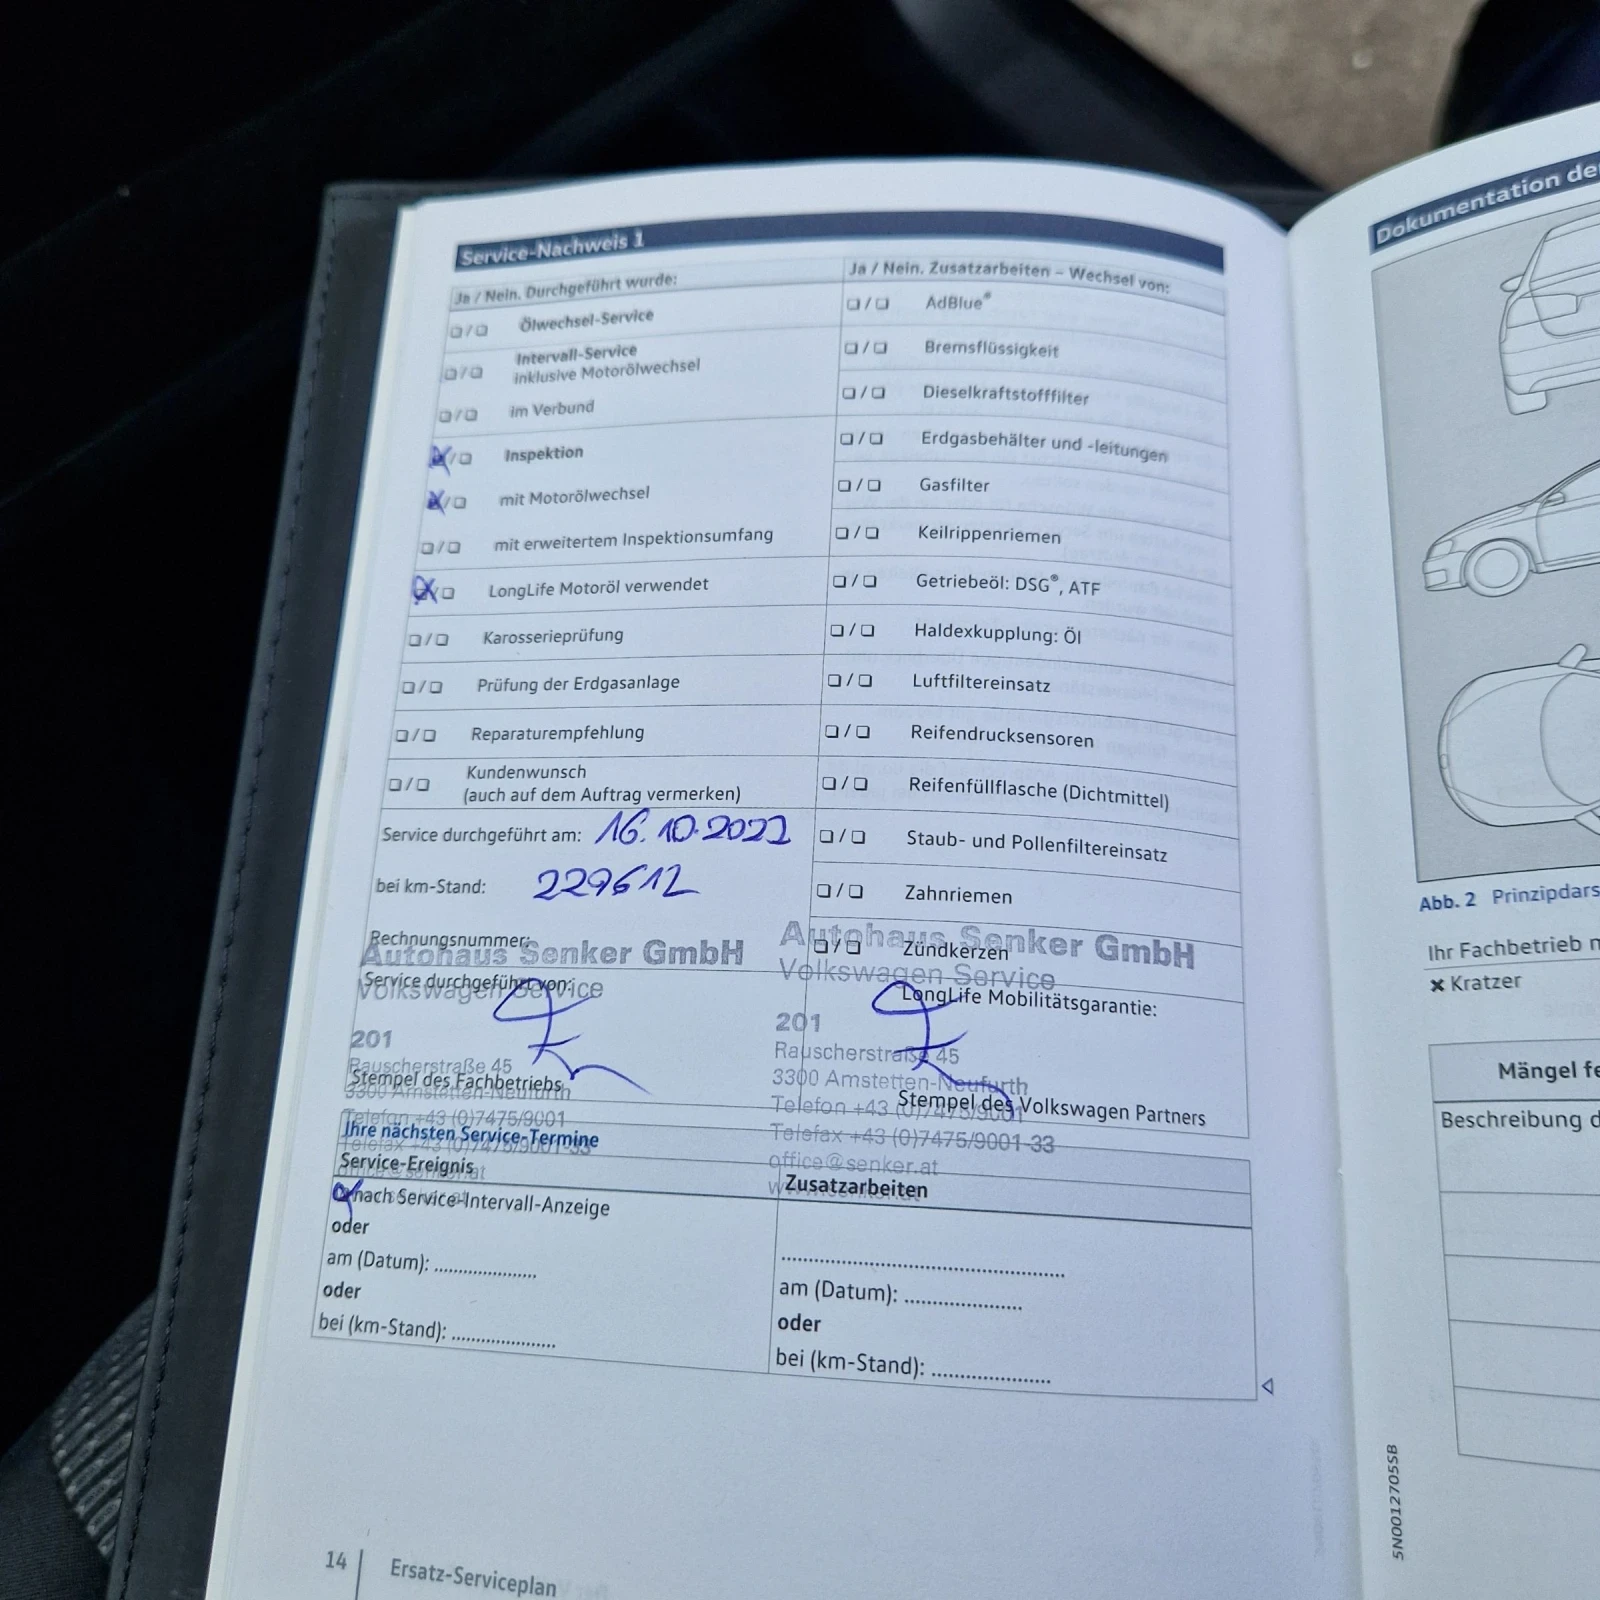 Service-Nachweis 1
Ja / Nein. Durchgeführt wurde:
❏/❏ Ölwechsel-Service
❏/❏ Intervall-Service
inklusive Motorölwechsel
❏/❏ im Verbund
❏/❏ Inspektion
❏/❏ mit Motorölwechsel
❏/❏ mit erweitertem Inspektionsumfang
❏/❏ LongLife Motoröl verwendet
❏/❏ Karosserieprüfung
❏/❏ Prüfung der Erdgasanlage
❏/❏ Reparaturempfehlung
❏/❏ Kundenwunsch
(auch auf dem Auftrag vermerken)
Service durchgeführt am: 16.10.2022
bei km-Stand: 229612
Rechnungsnummer:
Autohaus Senker GmbH
Service durchgeführt von:
Volkswagen Service
201
Rauscherstraße 45
Stempel des Fachbetriebs
3300 Amstetten-Neufurth
Telefon +43 (0)7475/9001
Telefax +43 (0)7475/9001-33
office@senker.at
Ja / Nein. Zusatzarbeiten – Wechsel von:
❏/❏ AdBlue®
❏/❏ Bremsflüssigkeit
❏/❏ Dieselkraftstofffilter
❏/❏ Erdgasbehälter und -leitungen
❏/❏ Gasfilter
❏/❏ Keilrippenriemen
❏/❏ Getriebeöl: DSG®, ATF
❏/❏ Haldexkupplung: Öl
❏/❏ Luftfiltereinsatz
❏/❏ Reifendrucksensoren
❏/❏ Reifenfüllflasche (Dichtmittel)
❏/❏ Staub- und Pollenfiltereinsatz
❏/❏ Zahnriemen
❏/❏ Zündkerzen
Autohaus Senker GmbH
Volkswagen Service
LongLife Mobilitätsgarantie:
201
Rauscherstraße 45
3300 Amstetten-Neufurth
Telefon +43 (0)7475/9001
Stempel des Volkswagen Partners
Telefax +43 (0)7475/9001-33
office@senker.at
Ihre nächsten Service-Termine
Service-Ereignis
❏ nach Service-Intervall-Anzeige
oder
am (Datum): ......................
oder
bei (km-Stand): ......................
Zusatzarbeiten
............................................................
am (Datum): ......................
oder
bei (km-Stand): ......................
14 Ersatz-Serviceplan
Dokumentation
Abb. 2
Ihr Fachbetrieb
✖ Kratzer
Mängel
Beschreibung
5N0012705SB